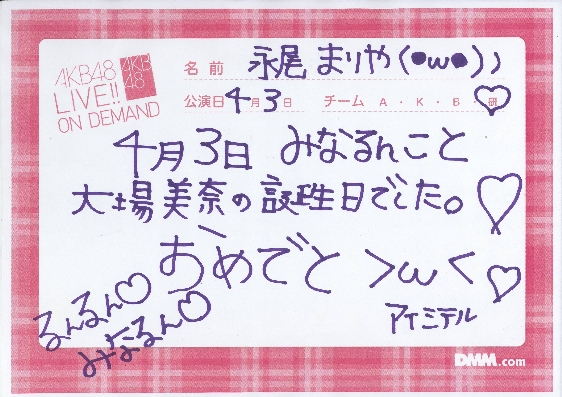 AKB48
LIVE!!
ON DEMAND
AKB
48
名前 永尾まりや(●ω●)))
公演日 4月3日 チーム A・K・B・研
4月3日 みなるんこと
大場美奈の誕生日でした。
おめでと >ω<
るんるん♡
みなるん♡
アイミテル
DMM.com